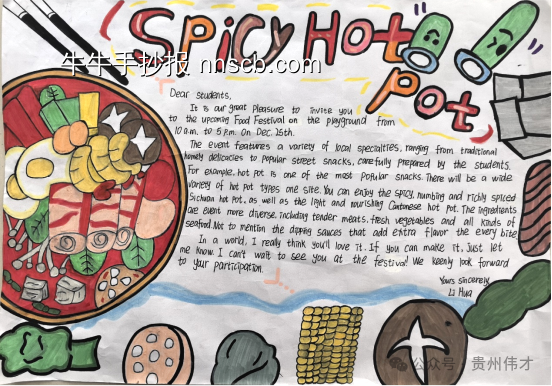 Spicy Hot
pot
牛牛手抄报 nhscb.com
Dear students,
It is our great pleasure to invite you
to the upcoming Food Festival on the playground from
10 a.m. to 5 p.m. on Dec. 25th.
The event features a variety of local specialties, ranging from traditional
homely delicacies to popular street snacks, carefully prepared by the students.
For example, hot pot is one of the most popular snacks. There will be a wide
variety of hot pot types one site. You can enjoy the spicy, numbing and richly spiced
Sichuan hot pot, as well as the light and nourishing Cantonese hot pot. The ingredients
are event more diverse, including tender meats, fresh vegetables and all kinds of
seafood. Not to mention the dipping sauces that add extra flavor the every bite
In a world, I really think you'll love it. If you can make it, Just let
me know. I can't wait to see you at the festival! We keenly look forward
to your participation.
Yours sincerely,
Li Hua
公众号 · 贵州伟才